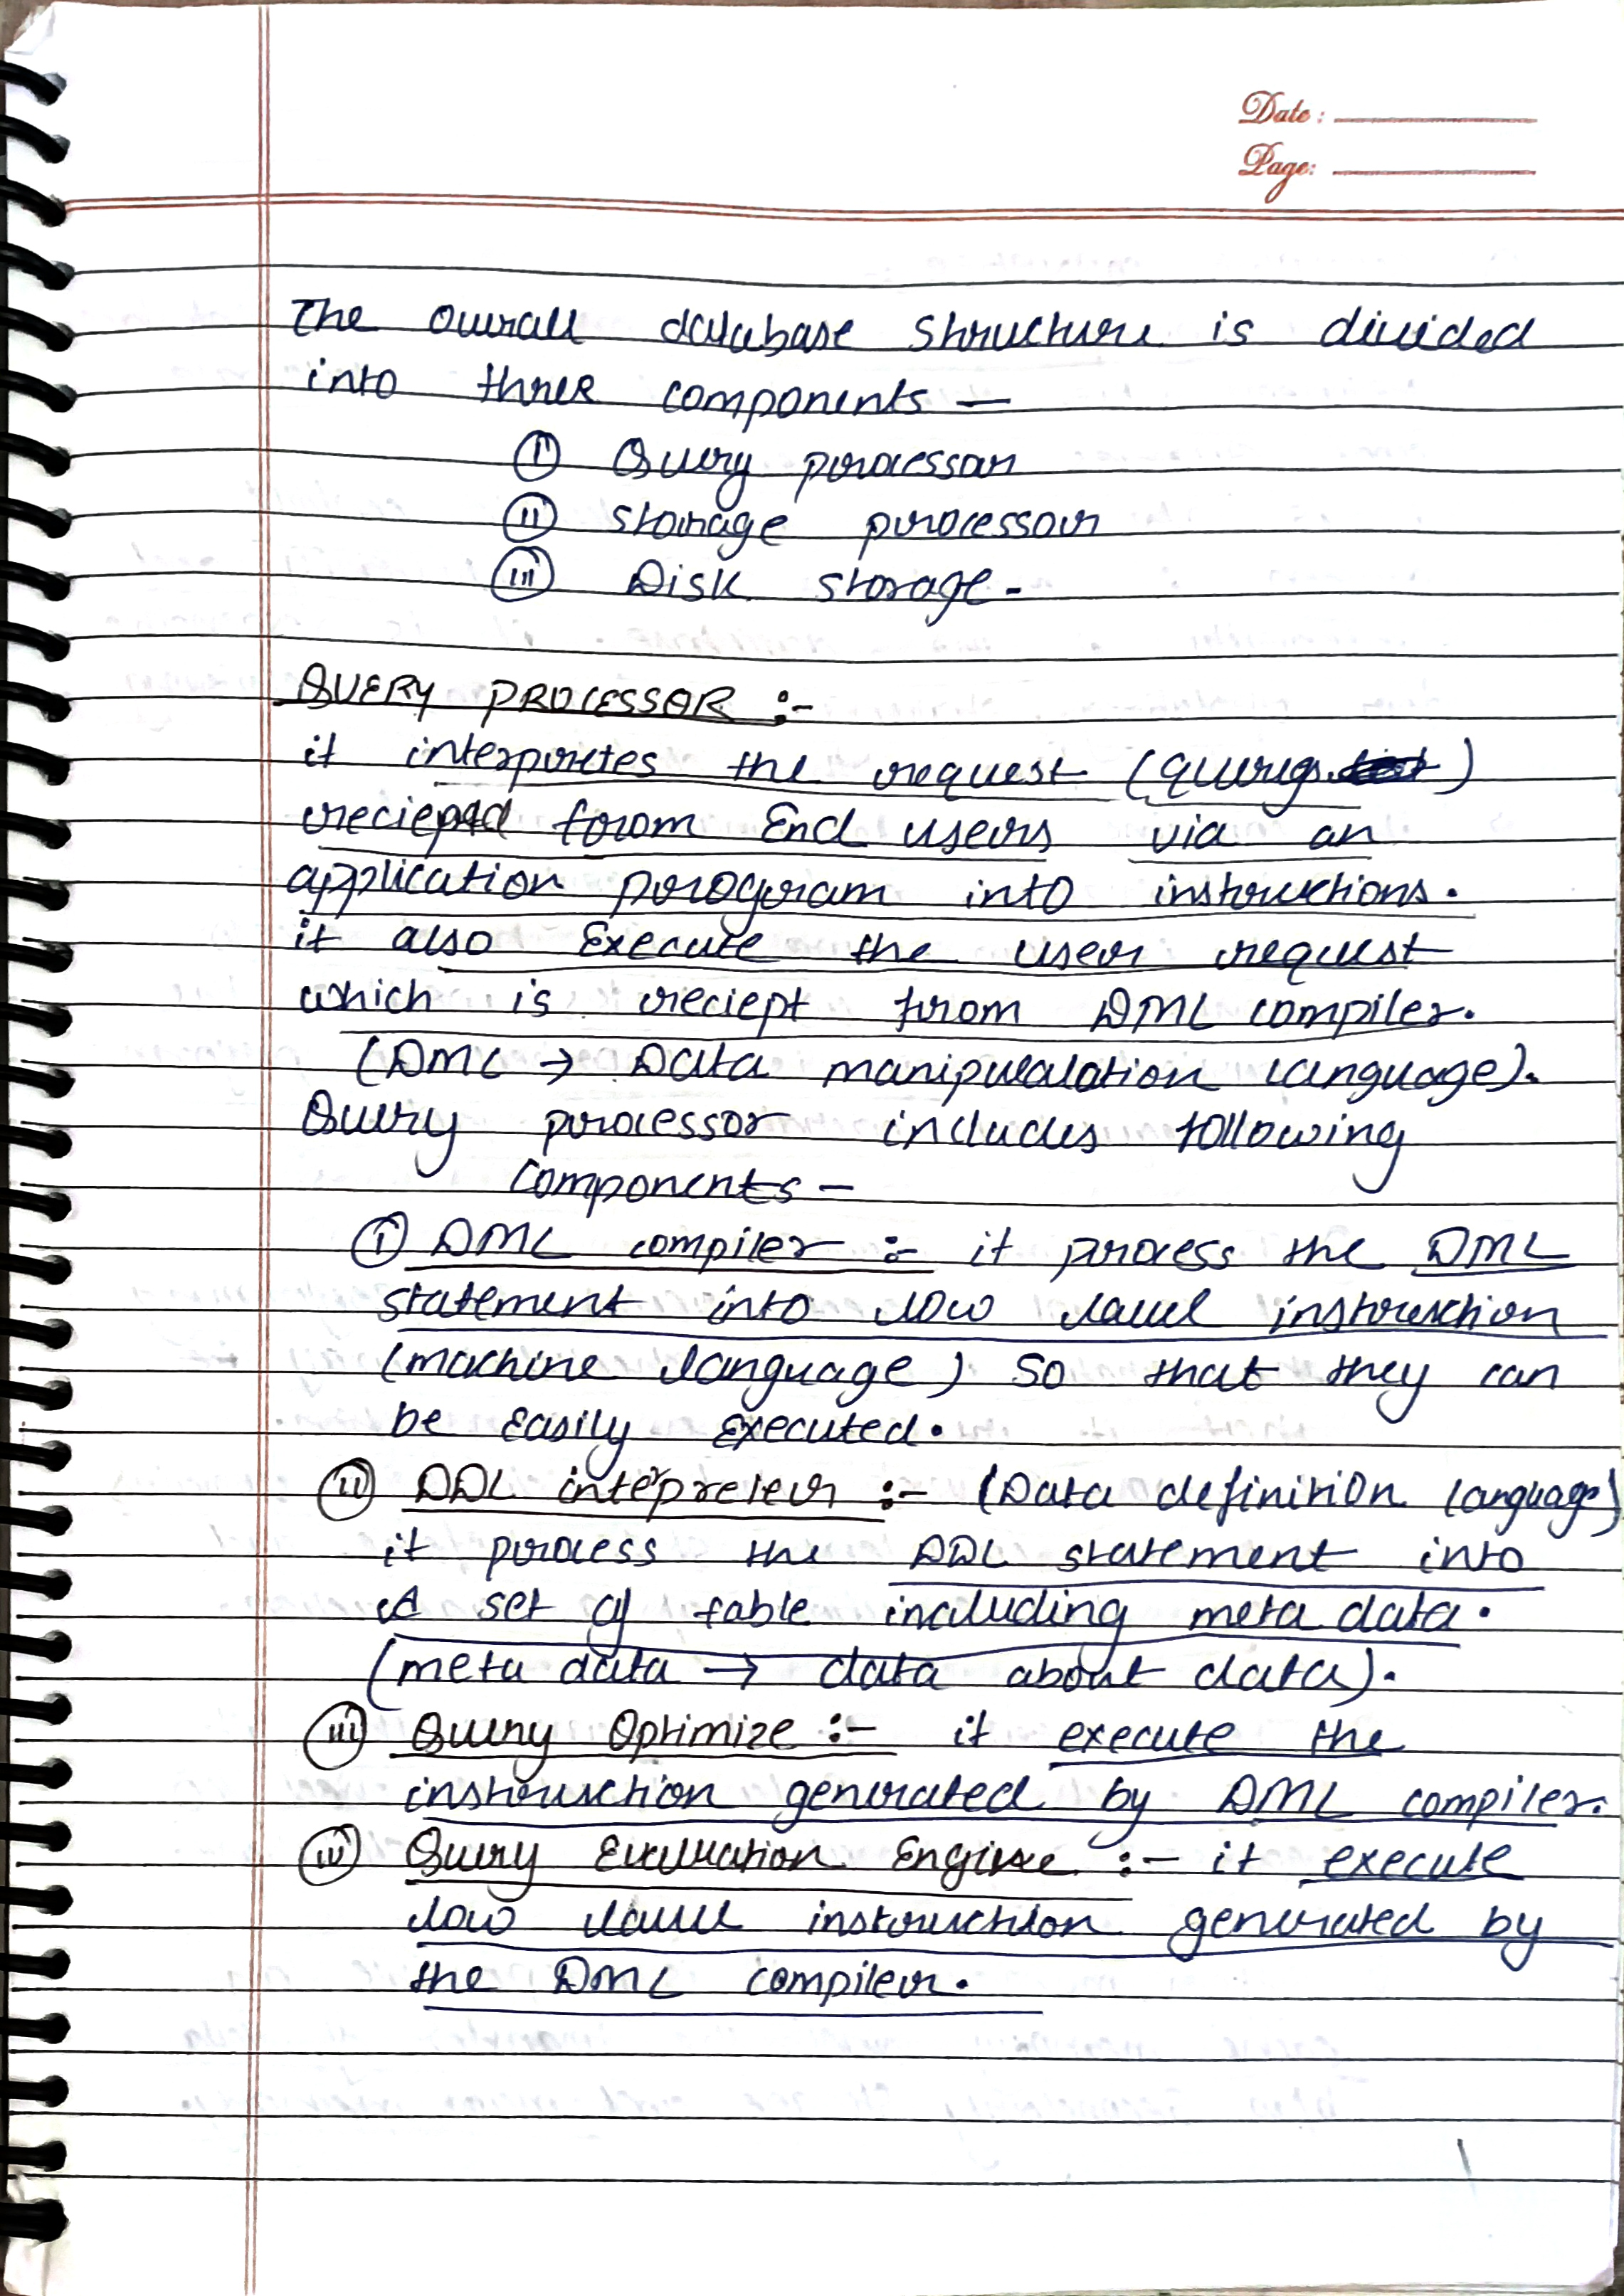 Date:
Page:
The overall database structure is divided
into three components —
(i) Query processor
(ii) storage processor
(iii) Disk storage.
QUERY PROCESSOR :-
it interpretes the request (querys)
reciepqd from End users via an
application program into instructions.
it also Execute the user request
which is reciept from DML compiler.
(DML → Data manipulalation language).
Query processor includes following
components —
(i) DML compiler :- it process the DML
statement into low lavel instruction
(machine language) so that they can
be easily executed.
(ii) DDL intepreter :- (Data definition language)
it process the DDL statement into
A set of table including meta data.
(meta data → data about data).
(iii) Query Optimize :- it execute the
instruction generated by DML compiler.
(iv) Query Evaluation Engine :- it execute
low lavel instruction generated by
the DML compiler.